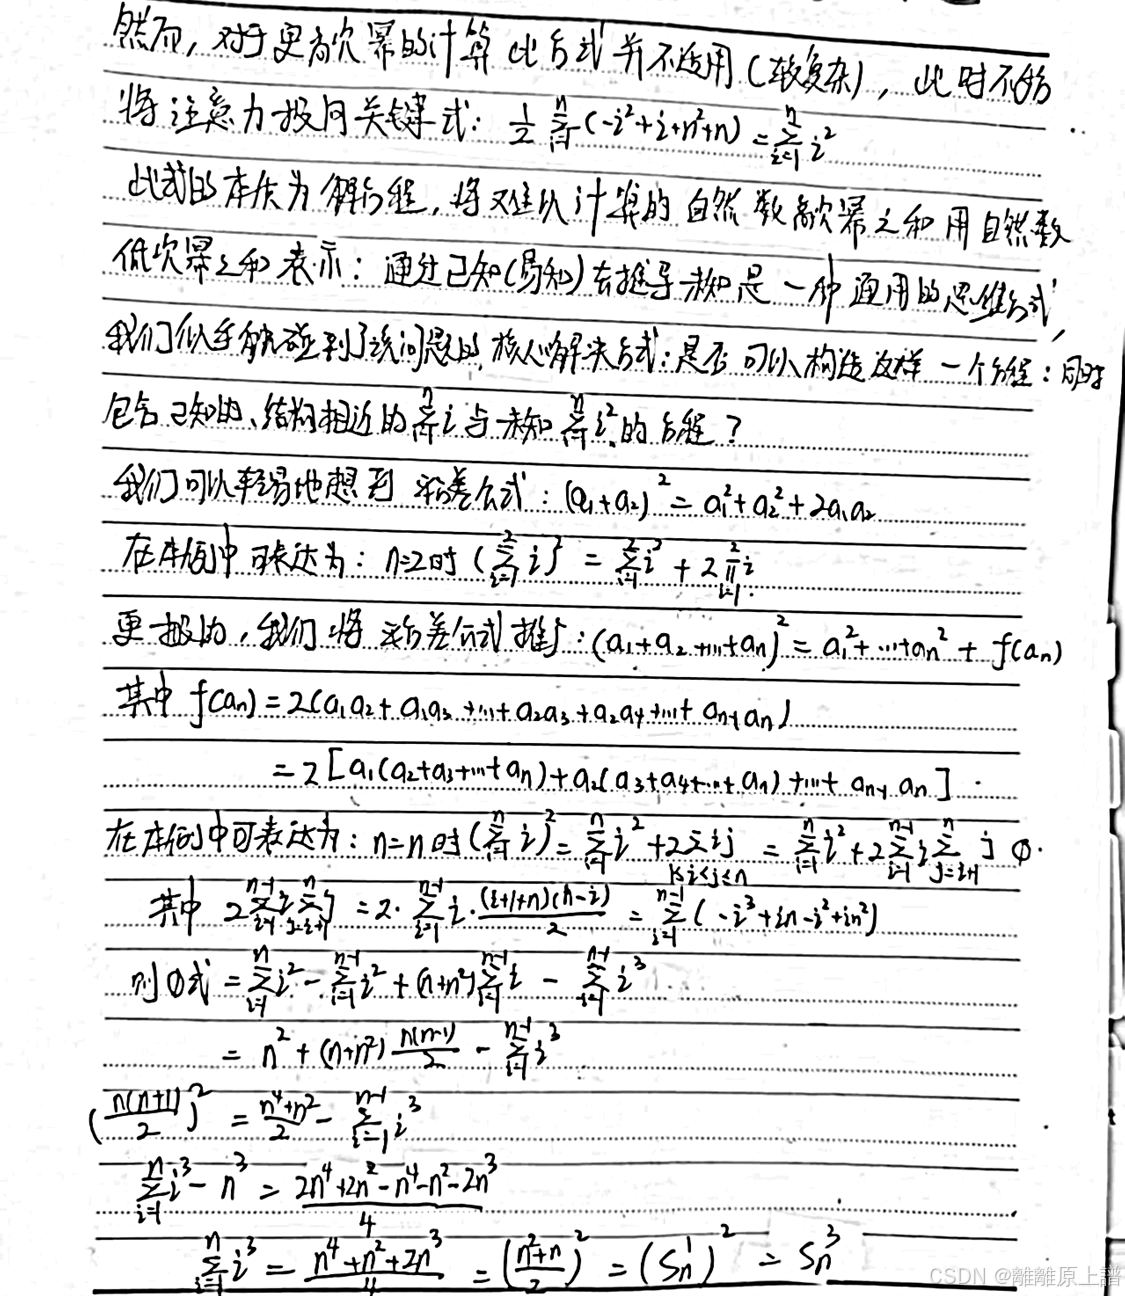 然而，对于更高次幂的计算此方式并不适用（较复杂），此时不妨
将注意力投向关键式：½ Σ_{i=1}^{n}(-i²+i+n²+n) = Σ_{i=1}^{n} i²
此式的本质为解方程，将难以计算的自然数高次幂之和用自然数
低次幂之和表示：通过已知(易知)去推导未知是一种通用的思维方式，
我们似乎触碰到了该问题的核心解决方式：是否可以构造这样一个方程：同时
包含已知的、结构相近的 Σ_{i=1}^{n} i 与未知 Σ_{i=1}^{n} i² 的方程？
我们可以轻易地想到 公式：(a₁+a₂)² = a₁²+a₂²+2a₁a₂
在本例中可表达为：n=2时 (Σ_{i=1}^{2} i)² = Σ_{i=1}^{2} i² + 2∏_{i=1}^{2} i
更 的，我们将 公式推广：(a₁+a₂+…+aₙ)² = a₁²+…+aₙ² + f(aₙ)
其中 f(aₙ) = 2(a₁a₂+a₁a₃+…+a₂a₃+a₂a₄+…+aₙ₋₁aₙ)
= 2[a₁(a₂+a₃+…+aₙ)+a₂(a₃+a₄+…+aₙ)+…+aₙ₋₁aₙ]
在本例中可表达为：n=n时 (Σ_{i=1}^{n} i)² = Σ_{i=1}^{n} i² + 2Σ_{1≤i<j≤n} ij = Σ_{i=1}^{n} i² + 2Σ_{i=1}^{n-1} i Σ_{j=i+1}^{n} j ①
其中 2Σ_{i=1}^{n-1} i Σ_{j=i+1}^{n} j = 2·Σ_{i=1}^{n-1} i·(i+1+n)(n-i)/2 = Σ_{i=1}^{n-1}(-i³+in-i²+in²)
则①式 = Σ_{i=1}^{n} i² - Σ_{i=1}^{n-1} i² + (n+n²)Σ_{i=1}^{n-1} i - Σ_{i=1}^{n-1} i³
= n² + (n+n²) n(n-1)/2 - Σ_{i=1}^{n-1} i³
(n(n+1)/2)² = (n⁴+n²)/2 - Σ_{i=1}^{n-1} i³
Σ_{i=1}^{n} i³ - n³ = (2n⁴+2n²-n⁴-n²-2n³)/4
Σ_{i=1}^{n} i³ = (n⁴+n²+2n³)/4 = ((n²+n)/2)² = (Sₙ¹)² = Sₙ³
CSDN @離離原上譜